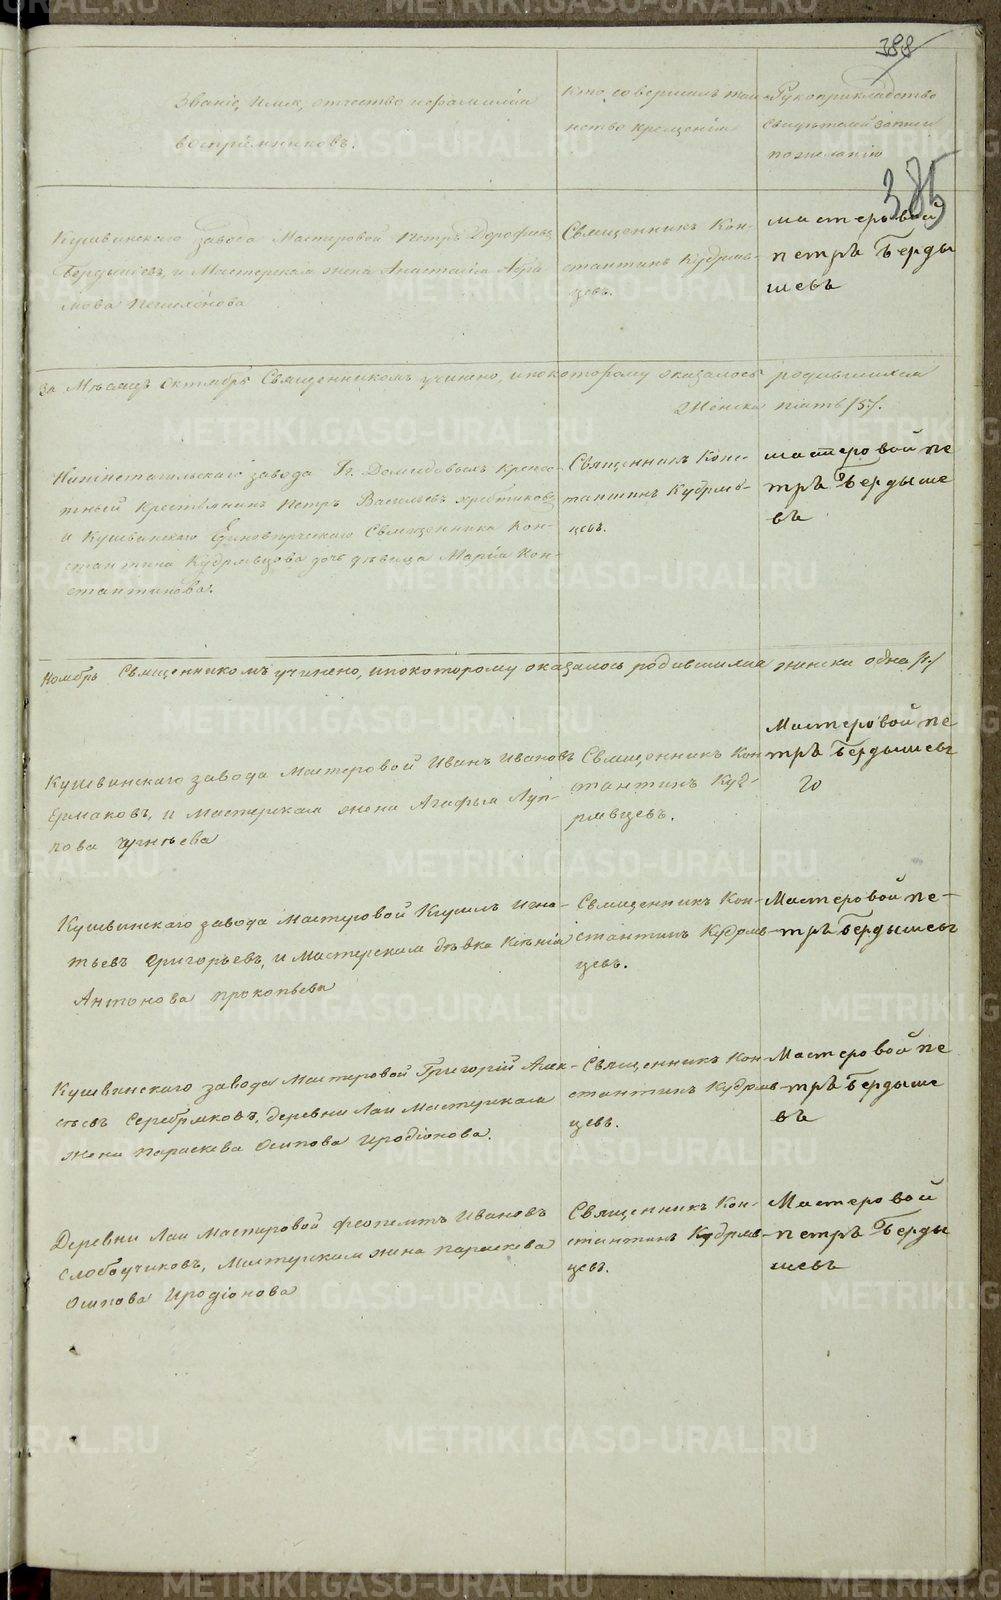 388
385
Званіе, имя, отчество и фамилія
воспріемниковъ.
Кто совершилъ таи
нство крещенія
Рукоприкладство
свидѣтелей записи
по желанію
Кушвинскаго завода Мастеровой Петръ Дорофѣевъ
Бердышевъ, и Мастерская жена Анастасія Абра
мова
Священникъ Кон-
стантинъ Кудряв-
цевъ.
мастеровой
петръ Берды
шевъ
за Мѣсяцъ Октябрь Священникомъ учинено, и по которому оказалось родившихся
Женска пять /5/.
Нижнетагильскаго завода Гг. Демидовыхъ крепос-
тный Крестьянинъ Петръ Васильевъ
и Кушвинскаго Единовѣрческаго Священника Кон-
стантина Кудрявцова дочь дѣвица Марія Кон-
стантинова.
Священникъ Конс-
тантинъ Кудряв-
цевъ.
мастеровой пе
тръ Бердыше
въ
Ноябрь Священникомъ учинено, и по которому оказалось родившихся женска одна /1./
Кушвинскаго завода Мастеровой Иванъ Ивановъ
Ермаковъ, и Мастерская жена Агафья Луп-
пова
Священникъ Кон
стантинъ Куд-
рявцевъ.
Мастеровой пе
тръ Бердышевъ
Кушвинскаго завода Мастеровой Кирилъ Игна-
тьевъ Григорьевъ, и Мастерская дѣвка Ксенія
Антонова Прокопьева
Священникъ Кон-
стантинъ Кудряв-
цевъ.
Мастеровой пе-
тръ Бердышевъ
Кушвинскаго завода Мастеровой Григорій Алек-
сѣевъ Серебряковъ, деревни Лаи Мастерская
жена Параскева Осипова Иродіонова.
Священникъ Кон
стантинъ Кудряв
цевъ.
Мастеровой пе
тръ Бердыше
въ
Деревни Лаи Мастеровой Феопемтъ Ивановъ
Слободчиковъ, Мастерская жена Параскева
Осипова Иродіонова
Священникъ Кон-
стантинъ Кудряв-
цевъ.
Мастеровой
петръ Берды
шевъ
METRIKI.GASO-URAL.RU